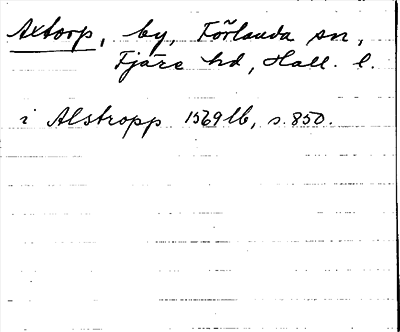 Axtorp, by, Förlanda sn,
Fjäre hd, Hall. l.
i Alstropp 1569 lb, s. 850.